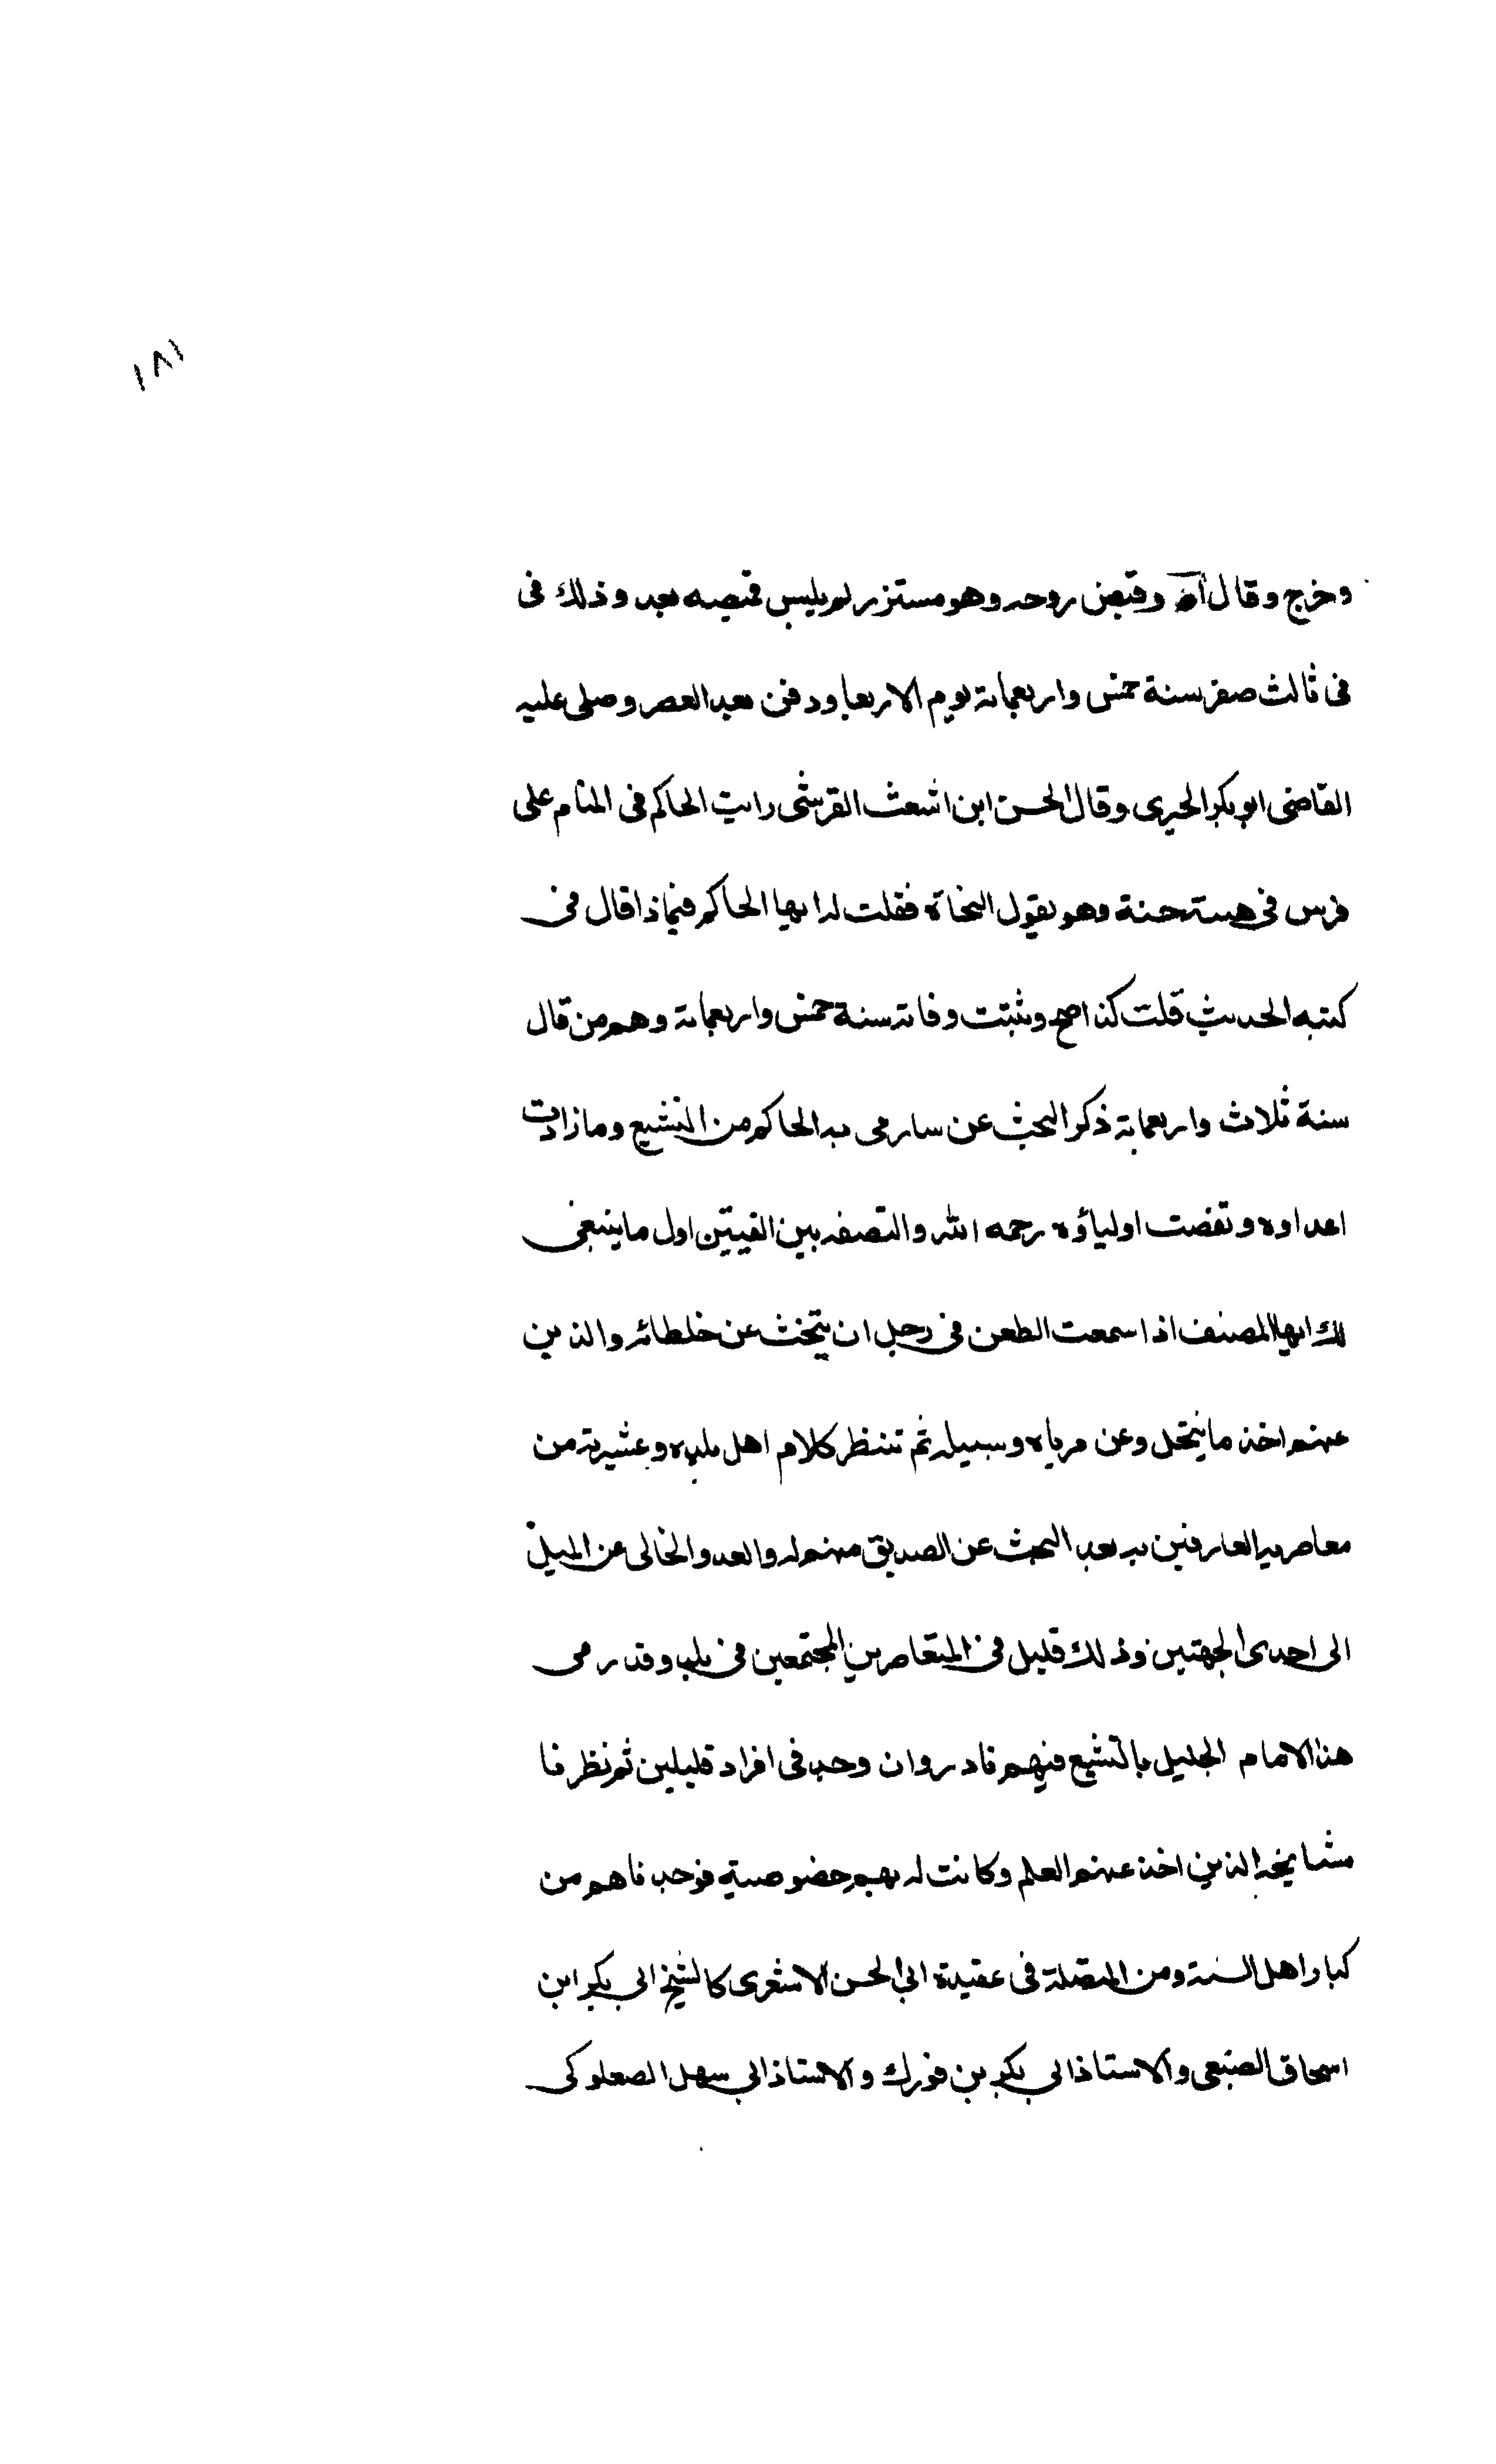 ١٨١
وخرج وقال آه وقبض روحه وهو مستزر لم يلبس قميصه بعد وذلك في
في ثالث صفر سنة خمس واربعماية يوم الاربعا ودفن بعد العصر وصلى عليه
القاضي ابو بكر الحيري وقال الحسن ابن اشعث القرشي رايت الحاكم في المنام على
فرس في هيئة حسنة وهو يقول النجاة فقلت له ايها الحاكم فيماذا قال في
كتبه الحديث قلت كذا صح وثبتت وفاته سنة خمس واربعماية وهم من قال
سنة ثلاث واربعماية ذكر البحث عن سا رمى به الحاكم من التشيع وما زادت
اعداوه ونقضت اولياؤه رحمه الله والتصفه بين الفيتين اول ما ينبغي
لك ايها المصنف اذا سمعت الطعن في رجل ان تبحث عن خلطائه والذين
عنهم اخذ ما ينتحل وعن مرباه وسبيله ثم تنظر كلام اهل بلده وعشيرته من
معاصريه العارفين به بعد البحث عن الصديق منهم له والعدو الخالي عن الميل
الى احدى الجهتين وذلك قليل في المتعاصرين المجتمعين في بلد وقد رمى
هذا الامام الجليل بالتشيع فيهم نادر وان وجد في افراد قليلين ثم نظرنا
مشايخه الذين اخذ عنهم العلم وكانت له بهم خصوصية فوجدناهم من
كبار اهل السنة ومن المتصلة في عقيدة ابي الحسن الاشعري كالشيخ ابي بكر ابن
اسحاق الصبغي والاستاذ ابي بكر بن فورك والاستاذ ابي سهل الصعلوكي